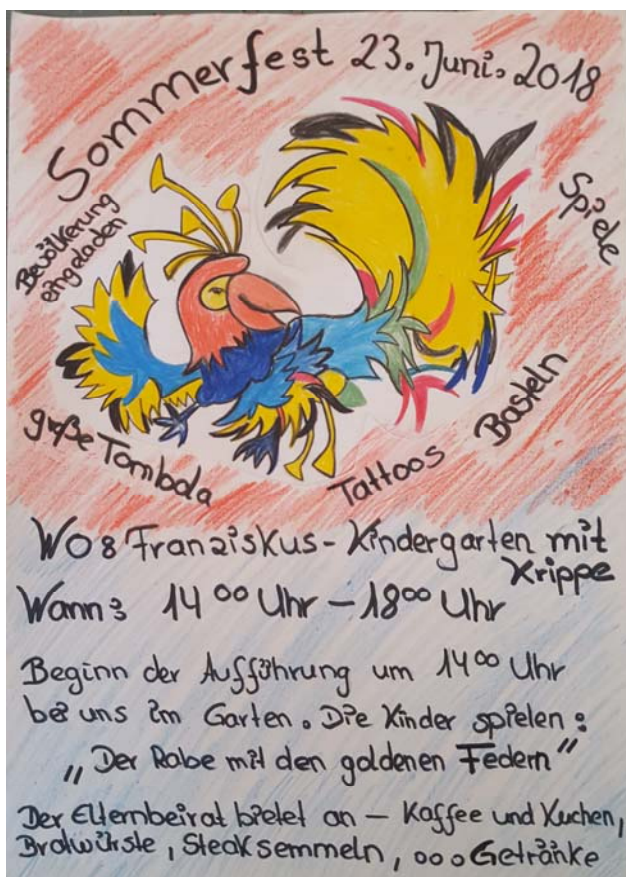 Sommerfest 23. Juni. 2018
Bevölkerung
eingeladen
Spiele
große Tombola
Tattoos
Basteln
Wo: Franziskus-Kindergarten mit
Krippe
Wann: 14 00 Uhr - 18 00 Uhr
Beginn der Aufführung um 14 00 Uhr
bei uns im Garten. Die Kinder spielen:
„Der Rabe mit den goldenen Federn"
Der Elternbeirat bietet an - Kaffee und Kuchen,
Bratwürste, Steaksemmeln, ... Getränke